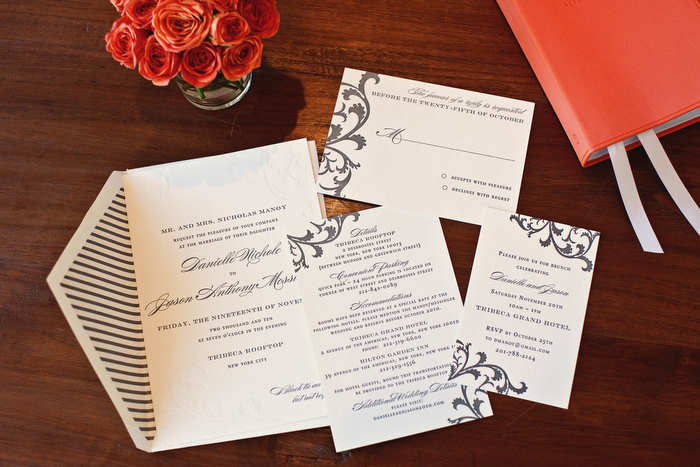 MR. AND MRS. NICHOLAS MANOY
REQUEST THE PLEASURE OF YOUR COMPANY
AT THE MARRIAGE OF THEIR DAUGHTER
Danielle Nichole
TO
Jason Anthony
FRIDAY, THE NINETEENTH OF
TWO THOUSAND AND TEN
AT SEVEN O'CLOCK IN THE EVENING
TRIBECA ROOFTOP
NEW YORK CITY
Black tie
but not
The favour of a reply is requested
BEFORE THE TWENTY-FIFTH OF OCTOBER
M
ACCEPTS WITH PLEASURE
DECLINES WITH REGRET
Details
TRIBECA ROOFTOP
2 DESBROSSES STREET
NEW YORK, NEW YORK 10013
(BETWEEN HUDSON AND GREENWICH STREET)
Convenient Parking
QUICK PARK – 24 HOUR PARKING IS LOCATED ON
CORNER OF WEST STREET AND DESBROSSES STREET
Accommodations
ROOMS HAVE BEEN RESERVED AT A SPECIAL RATE AT THE
FOLLOWING HOTELS, PLEASE MENTION THE MANOY/MESSINGER
WEDDING AND RESERVE BEFORE OCTOBER 20TH.
TRIBECA GRAND HOTEL
2 AVENUE OF THE AMERICAS, NEW YORK, NEW YORK
PHONE: 212-519-6600
HILTON GARDEN INN
39 AVENUE OF THE AMERICAS, NEW YORK, NEW YORK
FOR HOTEL GUESTS, ROUND TRIP TRANSPORTATION
BE PROVIDED TO THE TRIBECA ROOFTOP
Additional Wedding Details
PLEASE VISIT:
DANIELLEANDJASON2010.COM
PLEASE JOIN US FOR BRUNCH
CELEBRATING
Danielle and Jason
SATURDAY, NOVEMBER 20TH
10:00AM
TRIBECA GRAND HOTEL
RSVP BY OCTOBER 25TH
TO DMANOY@GMAIL.COM
201-788-2124